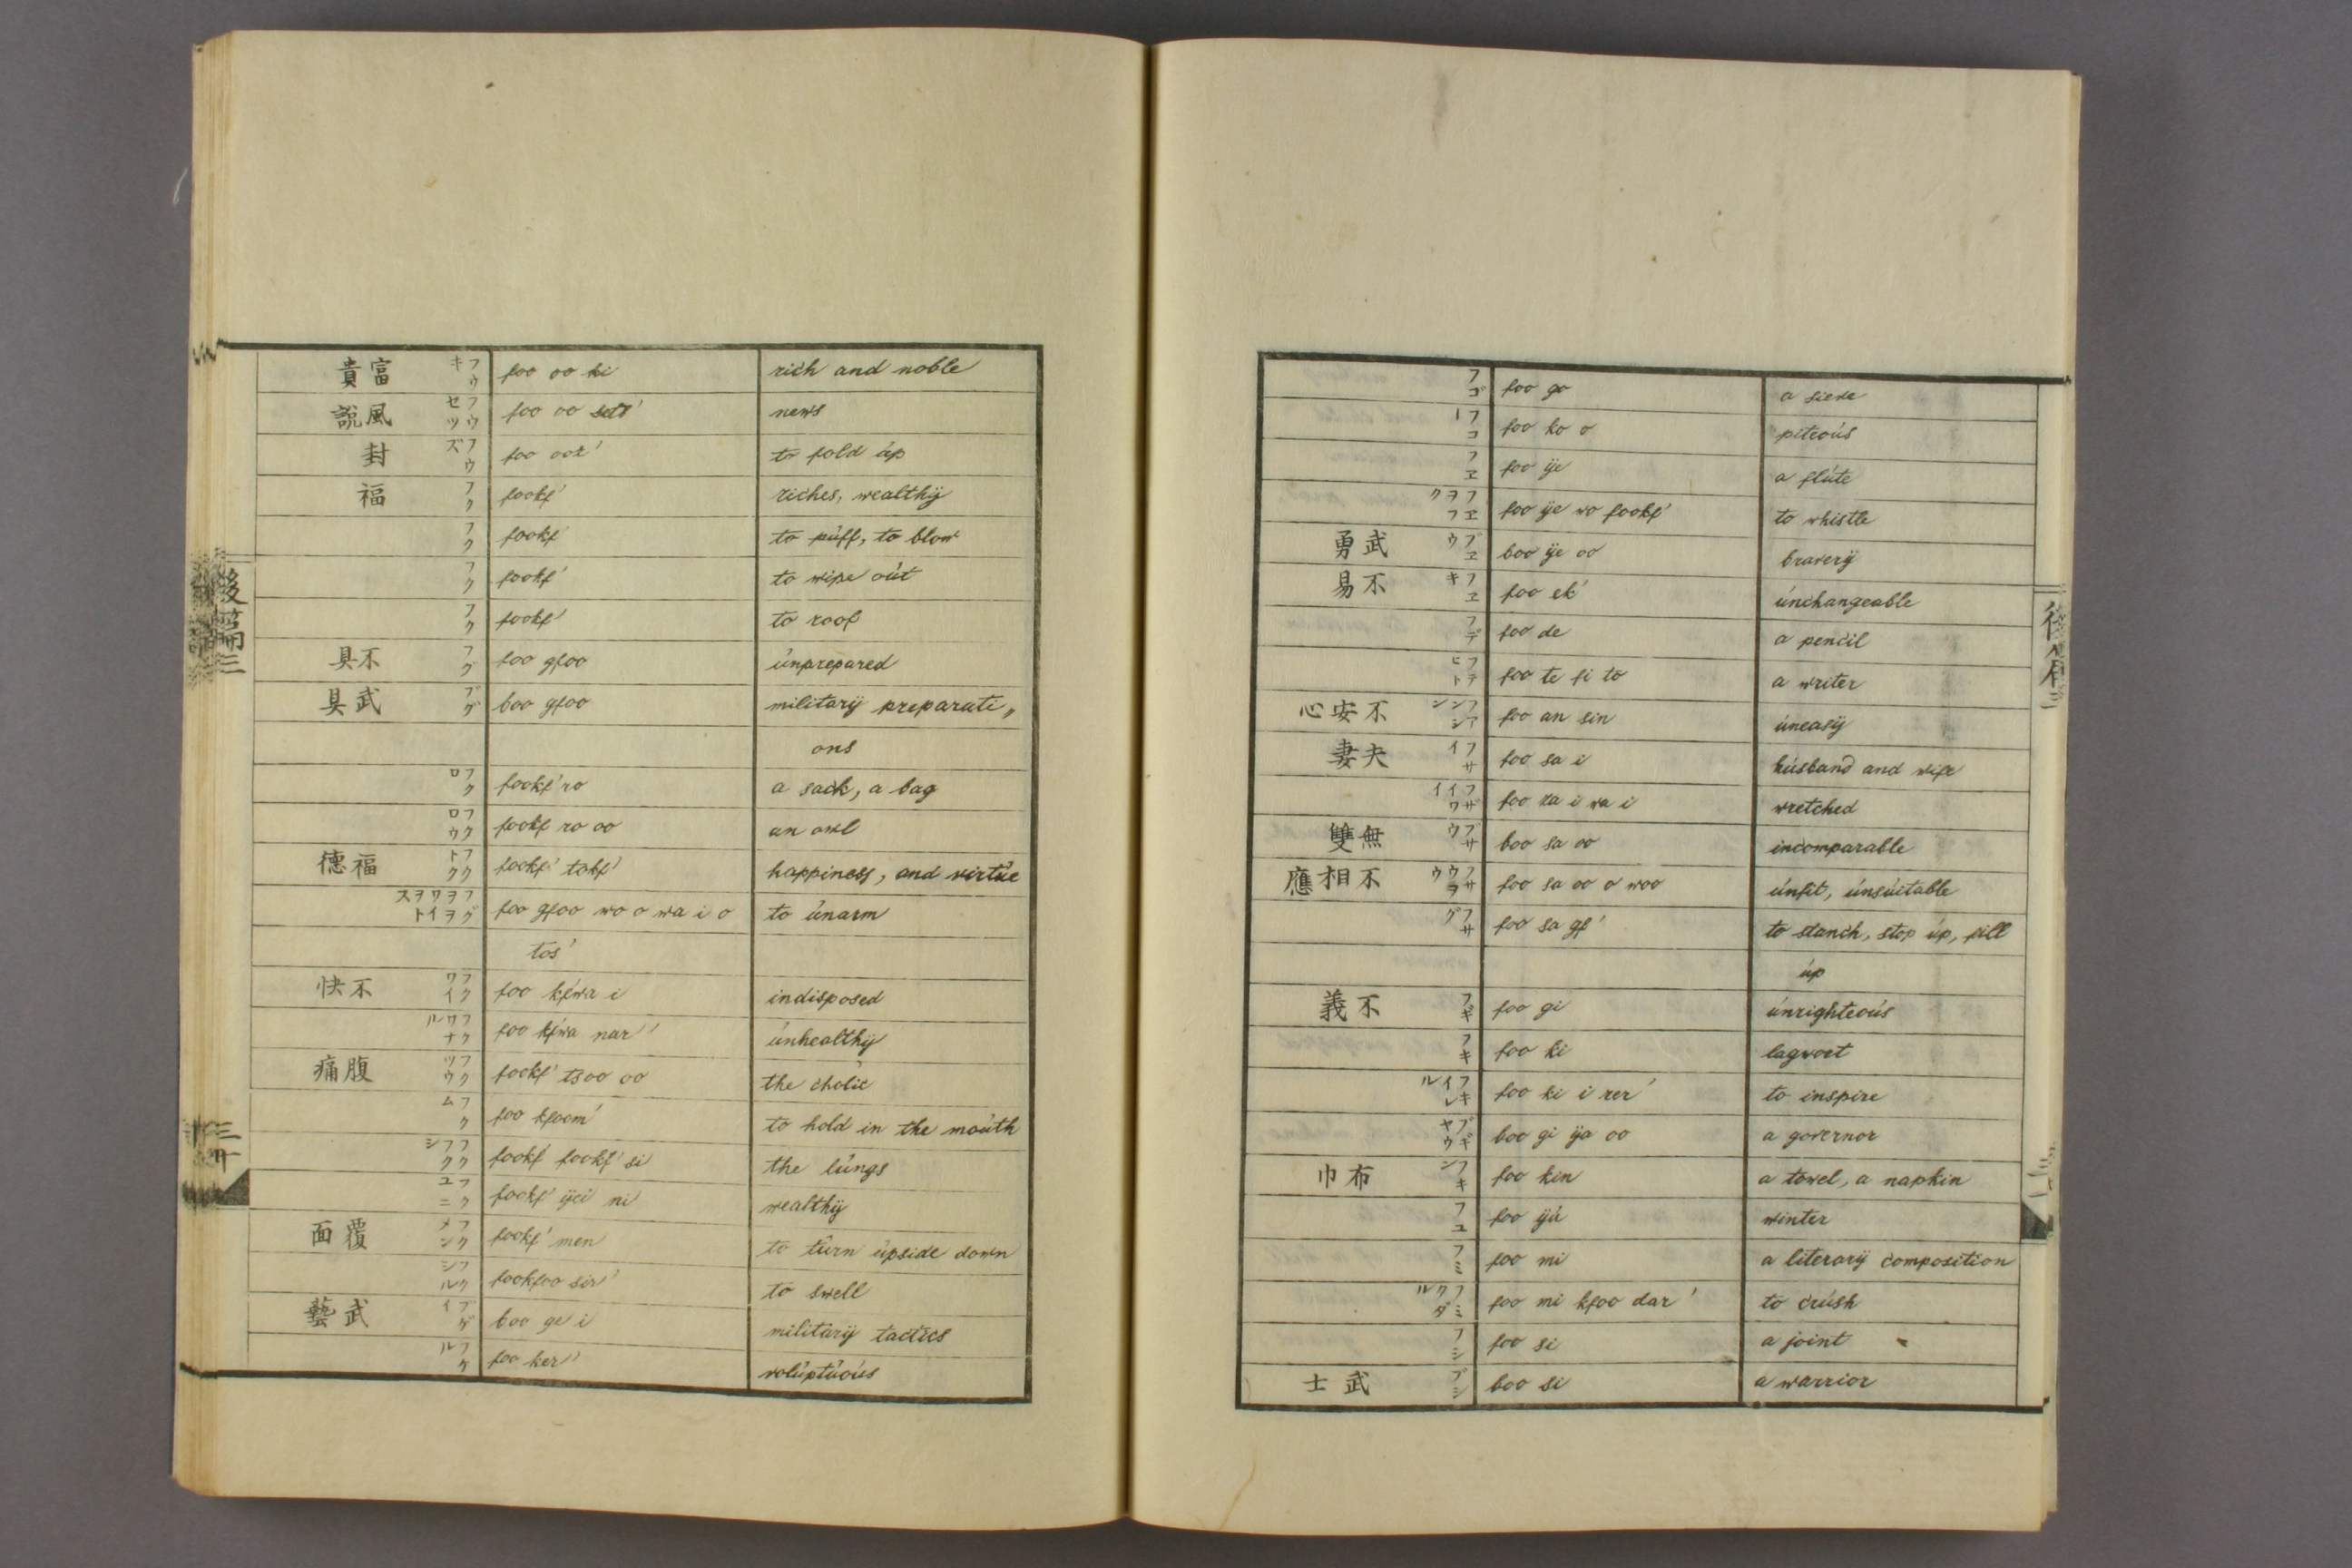 貴富 フウキ foo oo ki rich and noble
説風 フウセツ foo oo sets' news
封 フウズ foo ooz' to fold úp
福 フク fookf' riches, wealthÿ
フク fookf' to púff, to blow
フク fookf' to wipe oút
フク fookf' to roof
具不 フグ foo gfoo únprepared
具武 ブグ boo gfoo militarÿ preparati„
ons
フクロ fookf' ro a sack, a bag
フクロウ fookf ro oo an owl
德福 フクトク fookf' tokf' happiness, and virtúe
フグヲヲワイヲトス foo gfoo wo o wa i o to únarm
tos'
快不 フクワイ foo kfwa i indisposed
フクワナル foo kfwa nar' únhealthÿ
痛腹 フクツウ fookf' tsoo oo the cholic
フクム foo kfoom' to hold in the moúth
フクフクシ fookf fookf' si the lúngs
フクユニ fookf' ÿei ni wealthÿ
面覆 フクメン fookf' men to túrn úpside down
フクシル fookfoo sir' to swell
藝武 ブゲイ boo ge i militarÿ tactics
フケル foo ker' volúptúoús
後篇三
三十
フゴ foo go a sieve
フコー foo ko o piteoús
フヱ foo ÿe a flúte
フヱヲフク foo ÿe wo fookf' to whistle
勇武 ブヱウ boo ÿe oo braverÿ
易不 フヱキ foo ek' únchangeable
フデ foo de a pencil
フテヒト foo te fi to a writer
心安不 フアンシン foo an sin úneasÿ
妻夫 フサイ foo sa i húsband and wife
フザイワイ foo za i wa i wretched
雙無 ブサウ boo sa oo incomparable
應相不 フサウヲウ foo sa oo o woo únfit, únsúitable
フサグ foo sa gf' to stanch, stop úp, fill
úp
義不 フギ foo gi únrighteoús
フキ foo ki lagwort
フキイレル foo ki i rer' to inspire
ブギヤウ boo gi ÿa oo a governor
巾布 フキン foo kin a towel, a napkin
フユ foo ÿú winter
フミ foo mi a literarÿ composition
フミクダル foo mi kfoo dar' to crúsh
フシ foo si a joint
士武 ブシ boo si a warrior